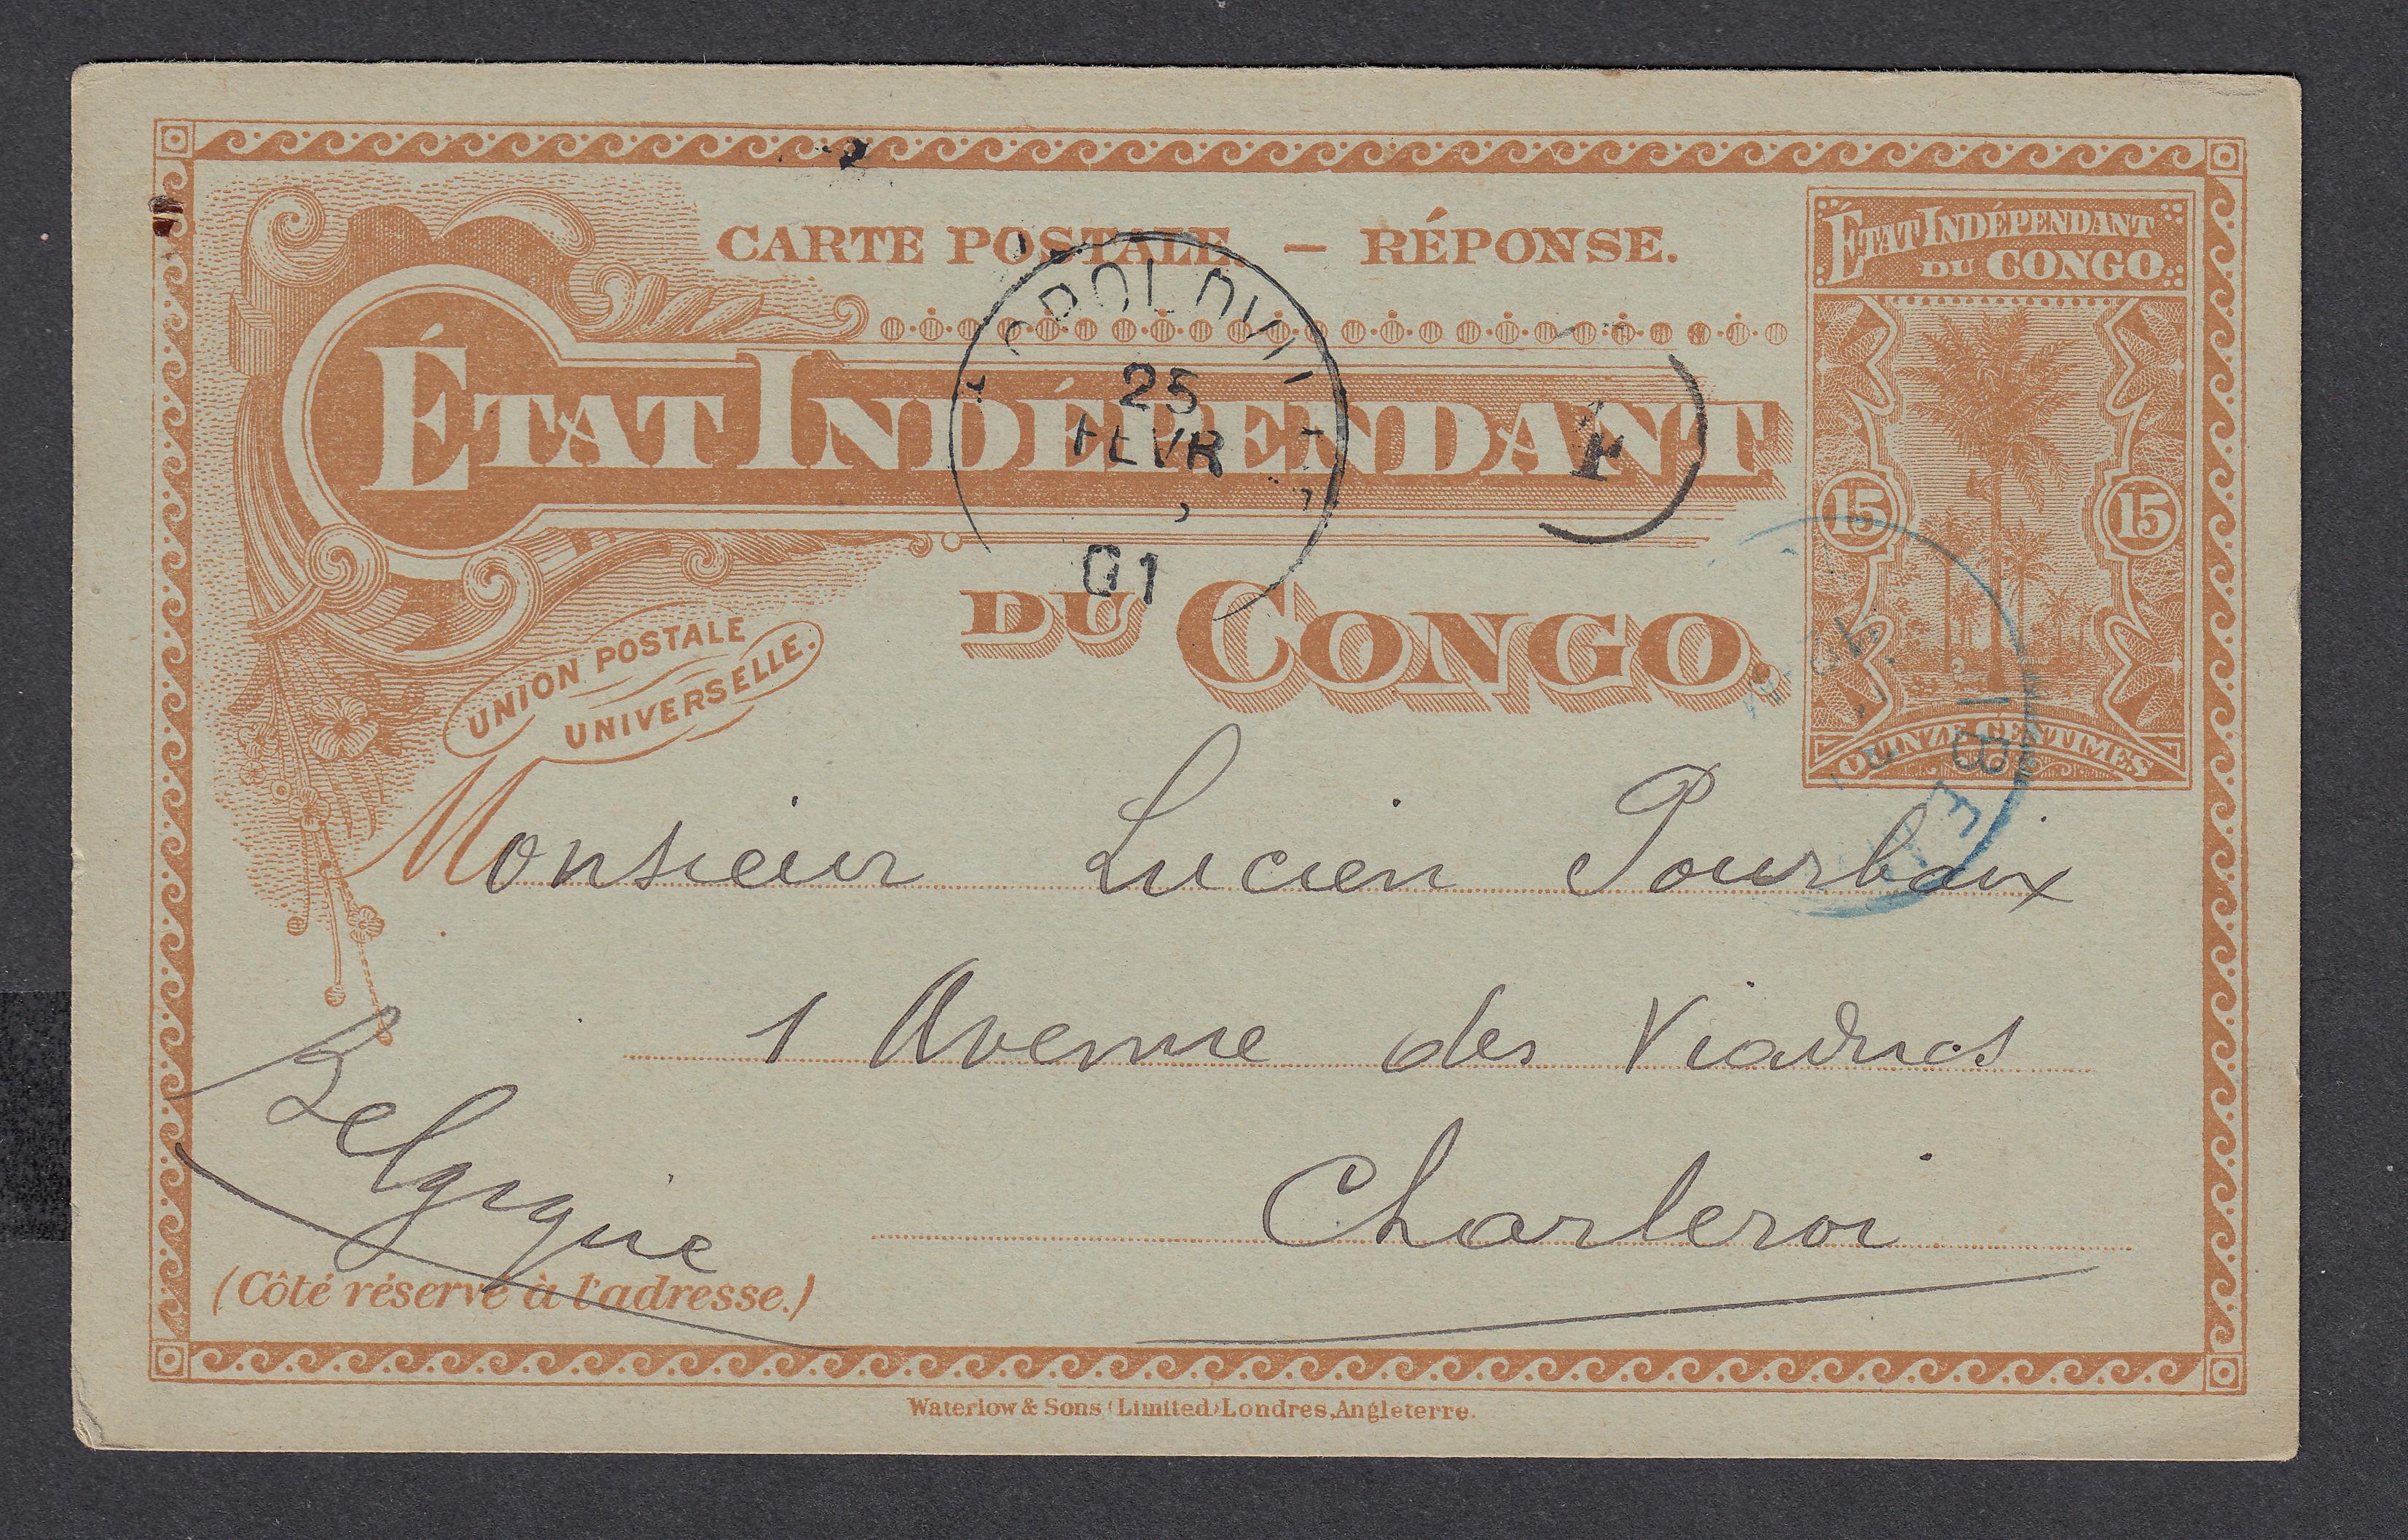 CARTE POSTALE. — RÉPONSE.
ÉTAT INDÉPENDANT
DU CONGO.
ÉTAT INDÉPENDANT
DU CONGO.
15 15
QUINZE CENTIMES
25
FEVR
01
F
UNION POSTALE
UNIVERSELLE.
Monsieur Lucien Pourbaix
1 Avenue des Viaducs
Charleroi
Belgique
(Côté réservé à l'adresse.)
Waterlow & Sons (Limited) Londres, Angleterre.